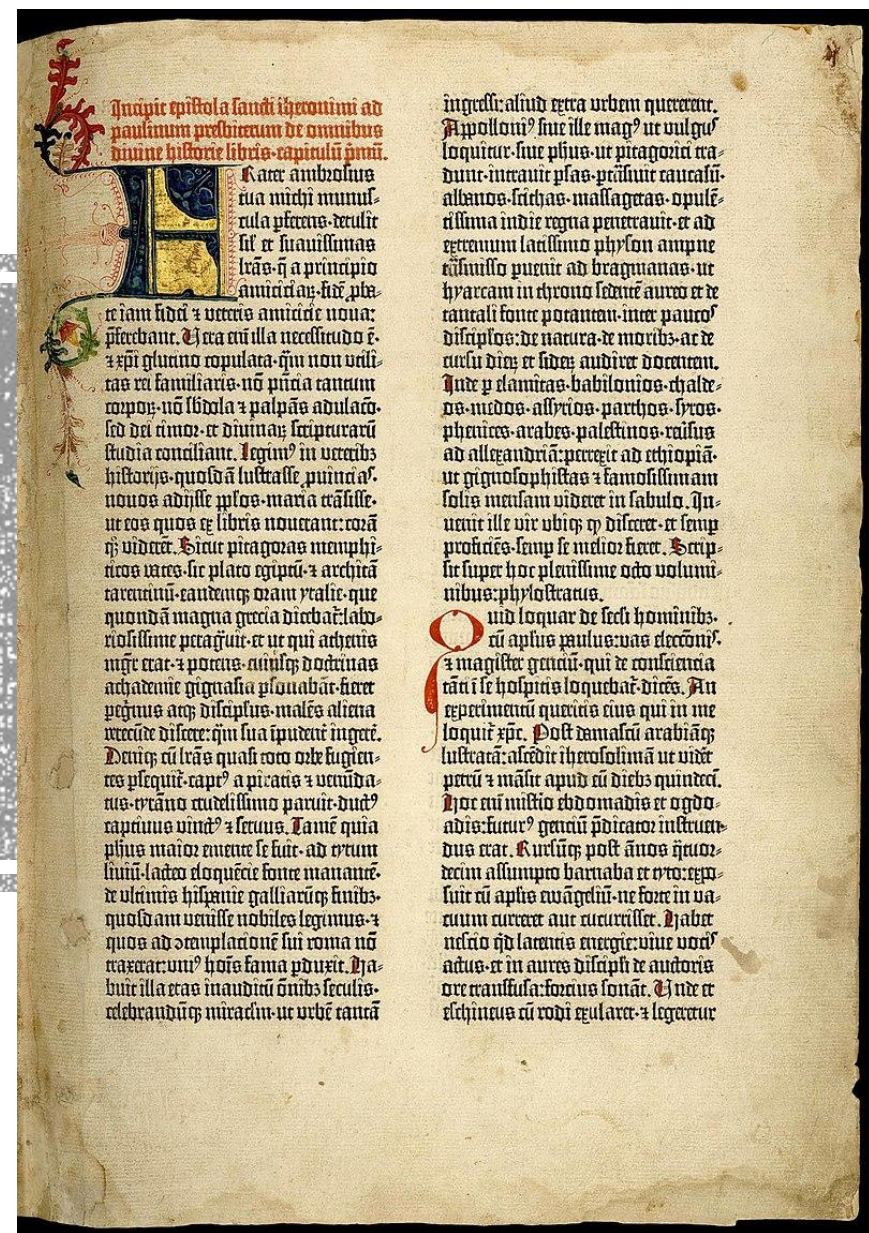 Incipit epistola sancti iheronimi ad
paulinum presbiterum de omnibus
divine historie libris·capitulū p̄mū.
Frater ambrosius
tua michi munus-
cula ꝑferens·detulit
sil̄ et suavissimas
lr̄as·q̄ a principio
amiciciaꝝ·fidē ꝓba-
te iam fidei ⁊ veteris amicicie nova:
p̄ferebant. Vera eni̅ illa necessitudo ē·
⁊ xp̄i glutino copulata·q̄m non utili-
tas rei familiaris·nō pn̄cia tantum
corpoꝝ·nō sb̄dola ⁊ palpās adulac̄o·
sed dei timor·et divinaꝝ scripturarū
studia conciliant. Legimꝰ in veteribꝫ
historijs·quosdā lustrasse ꝓvincias·
novos adijsse pp̄los·maria trāsisse·
ut eos quos ex libris noverant:corā
qꝫ viderēt. Sicut pitagoras memphi-
ticos vates·sic plato egiptū·⁊ architā
tarentinū·eandemqꝫ oram ytalie·que
quondā magna grecia dicebat̄:labo-
riosissime peragͥvit·et ut qui athenis
mgr̄ erat·⁊ potens·cuiusqꝫ doctrinas
achademie gignasia ꝑsonabāt·fieret
peg̑nus atqꝫ discipl̄us·malēs aliena
verecūde discere:q̄m sua īpudent̄ ingerē.
Deniqꝫ cū lr̄as quasi toto orbe fugien-
tes ꝑsequit̄·captꝰ a piratis ⁊ venūda-
tus·tyrāno crudelissimo paruit·ductꝰ
captivus vinctꝰ ⁊ servus. Tamē quia
ph̄us maior emente se fuit·ad tytum
liviū·lacteo eloquēcie fonte manantē·
de ultimis hispanie galliarūqꝫ finibꝫ·
quosdam venisse nobiles legimus·⁊
quos ad ꝯtemplacionē sui roma nō
traxerat:uniꝰ hoīs fama ꝑduxit. Ha-
buit illa etas inauditū om̄ibꝫ seculis·
celebrandūqꝫ miracl̄m·ut urbē tantā
ingressi:aliud extra urbem quererent.
Appolloniꝰ sive ille magꝰ ut vulgus
loquitur·sive ph̄us·ut pitagorici tra-
dunt·intravit ꝑsas·ꝑtn̄sivit caucasū·
albanos·scithas·massagetas·opulē-
tissima indie regna penetravit·et ad
extremum latissimo physon ampne
trāsmisso ꝑvenit ad bragmanas·ut
hyarcam in throno sedentē aureo et de
tantali fonte potantem·inter paucos
discipl̄os:de natura·de moribꝫ·ac de
cursu dieꝝ et sideꝝ audiret docentem.
Inde ꝑ elamitas·babilonios·chalde-
os·medos·assyrios·parthos·syros·
phenices·arabes·palestinos·rev̄sus
ad allexandriā:perrexit ad ethiopiā·
ut gignosophistas ⁊ famosissimam
solis mensam videret in sabulo. In-
venit ille vir ubiqꝫ qꝫ disceret·et semꝑ
proficiēs·semꝑ se melior fieret. Scrip-
sit super hoc plenissime octo volumi-
nibus:phylostratus.
Quid loquar de secl̄i hominibꝫ·
cū apl̄us paulus:vas elecc̄onis·
⁊ magister genciū·qui de consciencia
tāti ī se hospitis loquebat̄·dicēs. An
experimentū queritis eius qui in me
loquit̄ xp̄c. Post damascū arabiāqꝫ
lustratā:ascēdit iherosolimā ut vidēt
petrū ⁊ māsit apud eū diebꝫ quindeci̅.
Hoc eni̅ misterio ebdomadis et ogdo-
adis:futurꝰ genciū p̄dicator instruen-
dus erat. Rursūqꝫ post ānos q̄tuor-
decim assumpto barnaba et tyto:expo-
suit cū apl̄is ewāgeliū·ne forte in va-
cuum curreret aut cucurrisset. Habet
nescio q̇d latentis energie:vive vocis
actus·et in aures discipl̄i de auctoris
ore transfusa:forcius sonāt. Unde et
eschineus cū rodi exularet·⁊ legeretur